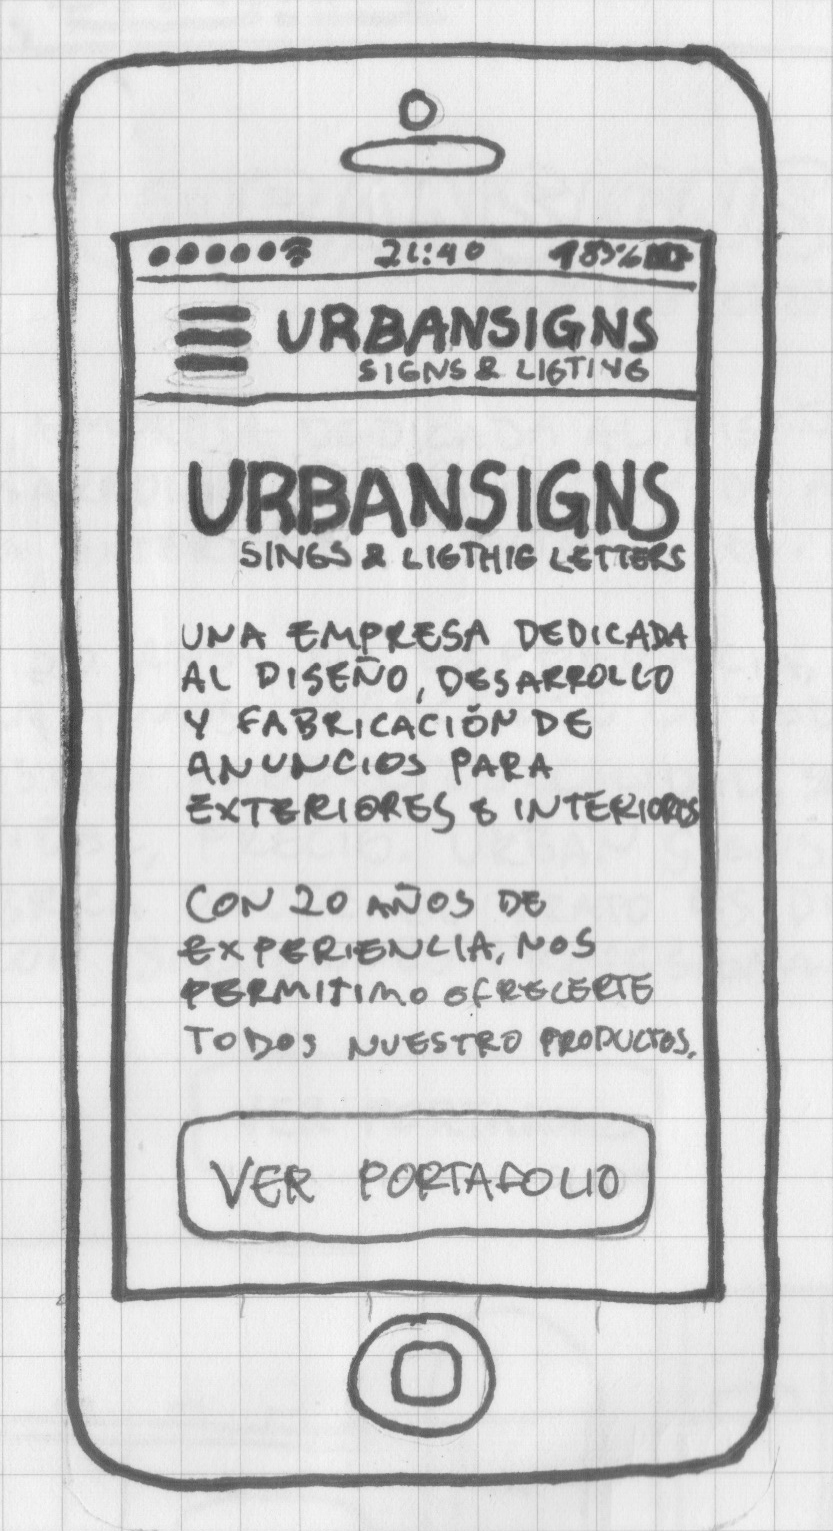 21:40 183%
URBANSIGNS
SIGNS & LIGTING
URBANSIGNS
SINGS & LIGTHIG LETTERS
UNA EMPRESA DEDICADA
AL DISEÑO, DESARROLLO
Y FABRICACIÓN DE
ANUNCIOS PARA
EXTERIORES E INTERIORES
CON 20 AÑOS DE
EXPERIENCIA, NOS
PERMITIMO OFRECERTE
TODOS NUESTRO PRODUCTOS.
VER PORTAFOLIO